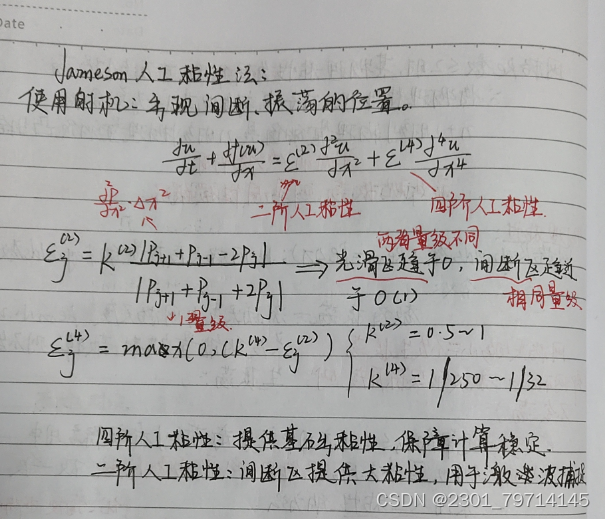 Date
Jameson 人工粘性法:
使用时机: 出现间断、振荡的位置。
du/dt + df(u)/dx = ε^(2) d²u/dx² + ε^(4) d⁴u/dx⁴
d²P/dx²·Δx²
二阶人工粘性
四阶人工粘性.
两者量级不同
ε_j^(2) = k^(2) |P_{j+1} + P_{j-1} - 2P_j| / |P_{j+1} + P_{j-1} + 2P_j| ⇒ 光滑区趋于0, 间断区趋近
于 O(1)
相同量级
量级
ε_j^(4) = max(0, (k^(4) - ε_j^(2)) { k^(2) = 0.5~1
k^(4) = 1/250 ~ 1/32
四阶人工粘性: 提供基础粘性, 保障计算稳定.
二阶人工粘性: 间断区提供大粘性, 用于激波捕捉
CSDN @2301_79714145